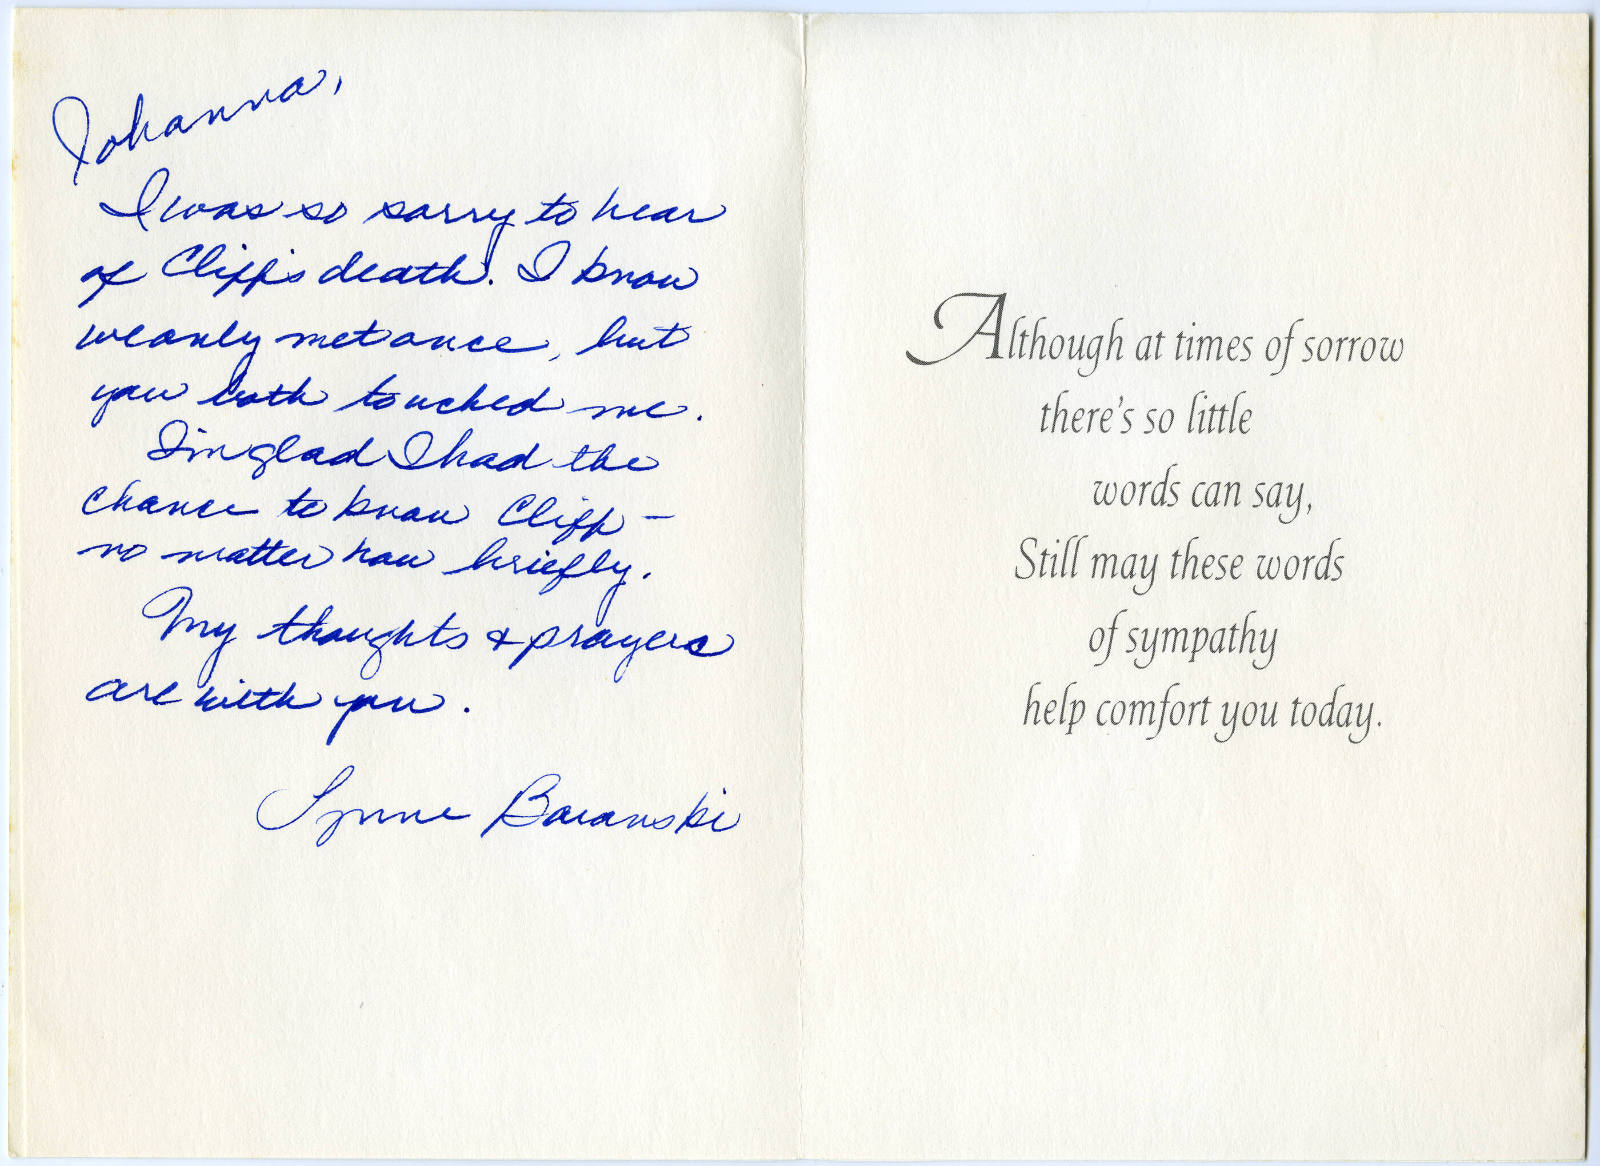 Johanna,
I was so sorry to hear
of Cliff's death. I know
we only met once, but
you both touched me.
I'm glad I had the
chance to know Cliff –
no matter how briefly.
My thoughts & prayers
are with you.
Lynne Baranski
Although at times of sorrow
there's so little
words can say,
Still may these words
of sympathy
help comfort you today.